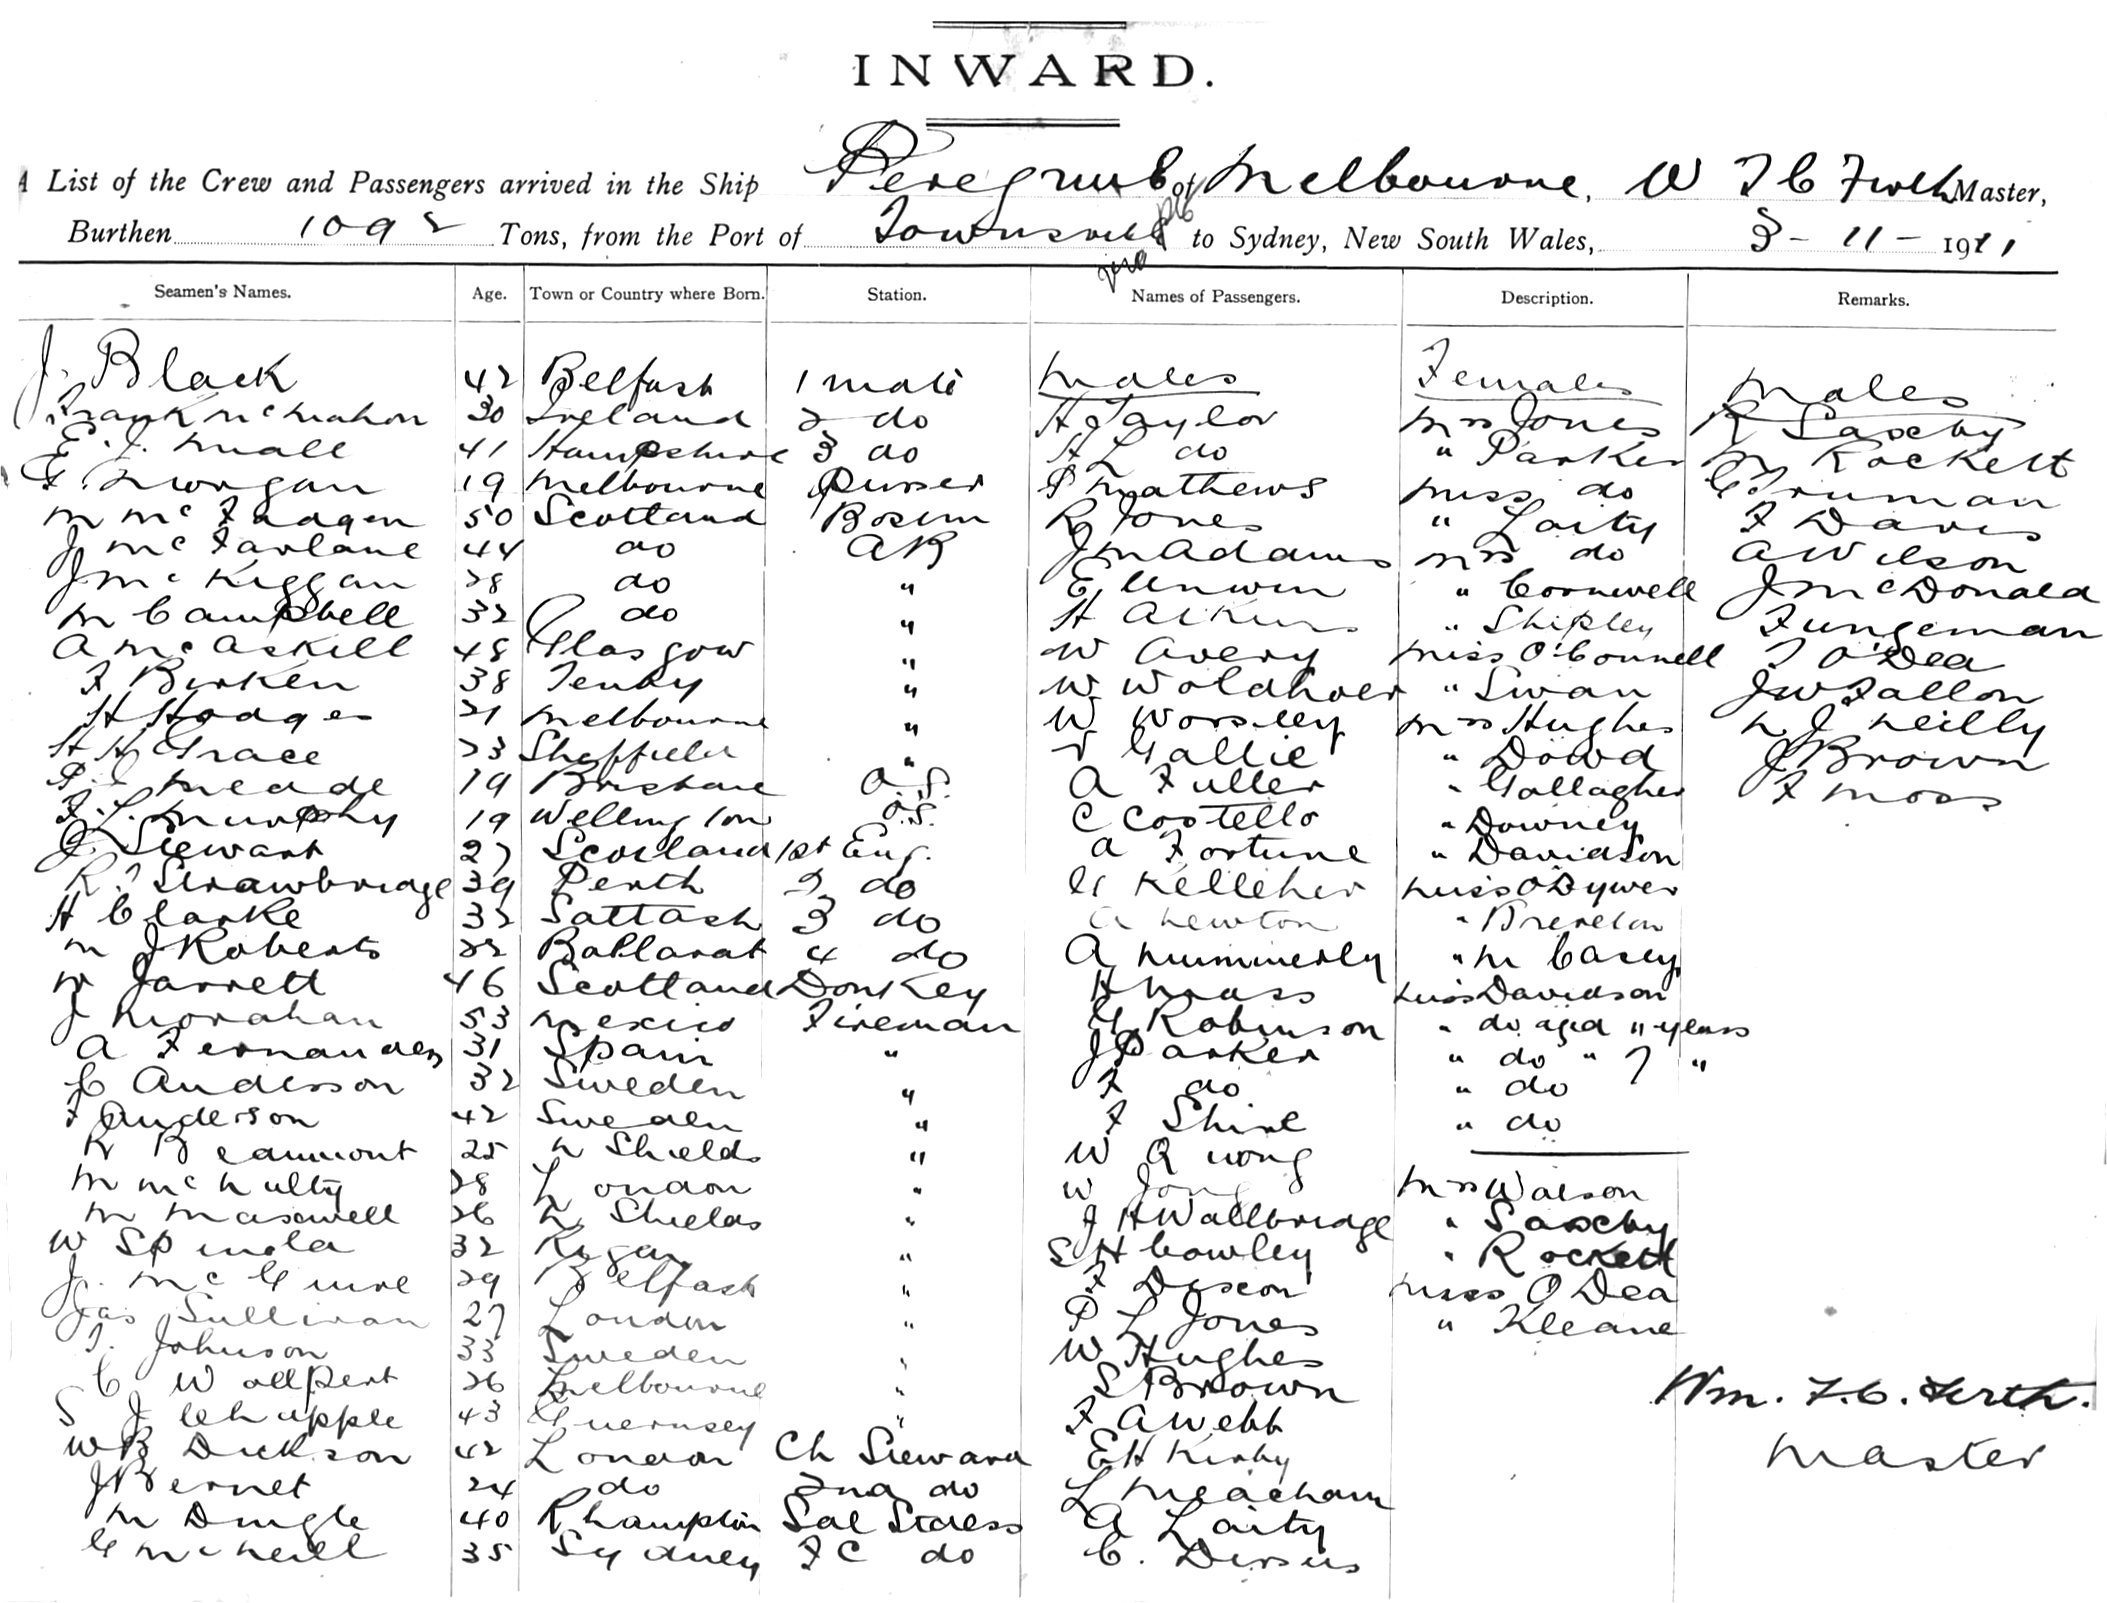 INWARD.
A List of the Crew and Passengers arrived in the Ship Peregrine of Melbourne, W F C Firth Master,
Burthen 1092 Tons, from the Port of Townsville to Sydney, New South Wales, 3 - 11 - 1911
Seamen's Names. Age. Town or Country where Born. Station. Names of Passengers. Description. Remarks.
J. Black 42 Belfast 1 mate Males Females Males
Frank McMahon 30 Ireland 2 do H Taylor Mrs Jones R Saxby
E. J. Small 41 Hampshire 3 do H L do " Parker M Rockett
F. Morgan 19 Melbourne Purser P Mathews Miss do C Truman
M McFadgen 50 Scotland Bosun R Jones " Laity F Davis
J McFarlane 44 do AB J M Adams Mrs do A Wilson
J McKiggan 28 do " E Unwin " Cornwell J McDonald
M Campbell 32 do " H " Shipley F Ungeman
A McAskill 48 Glasgow " W Avery Miss O'Connell T O'Dea
F Birken 38 Tenby " W " Swan J W Fallon
H Hodges 21 Melbourne " W Worsley Mrs Hughes N J Neilly
H H Grace 23 Sheffield " Gallie " Dowd J Brown
P. J Meade 19 Brisbane O.S. A Fuller " Gallagher F Moss
F. L. Murphy 19 Wellington O.S. C Costello " Downey
J Stewart 27 Scotland 1st Eng. A Fortune " Davidson
R. J Strawbridge 39 Perth 2 do Kelleher Miss O'Dywer
H Clarke 32 Saltash 3 do A Newton " Brereton
M J Roberts 22 Ballarat 4 do A Nummerly " M Casey
W Jarrett 46 Scotland Donkey H Moss Miss Davidson
J Monahan 53 Mexico Fireman G Robinson " do aged 11 years
A Fernandez 31 Spain " J Parker " do " 7 "
C Andersson 32 Sweden " F do " do
F Anderson 42 Sweden " F Shire " do
R Beaumont 25 N Shields " W
M McNulty 28 London " W Mrs Watson
M Maxwell 26 N Shields " J H Wallbridge " Saxby
W 32 Riga " S H Cowley " Rockett
J. McGuire 29 Belfast " F Dixon Miss O Dea
Jas Sullivan 27 London " P L Jones " Kleane
T. Johnson 33 Sweden " W Hughes
C Wollpert 26 Melbourne " S Brown Wm. F. C. Firth.
S J Chapple 43 Guernsey " F A Webb
W B Dickson 42 London Ch Steward E H Kirby Master
J Bernet 24 do 2nd do L Meacham
M Dingle 40 Rhampton Sal Stdess A Laity
C McNeill 35 Sydney F C do C.